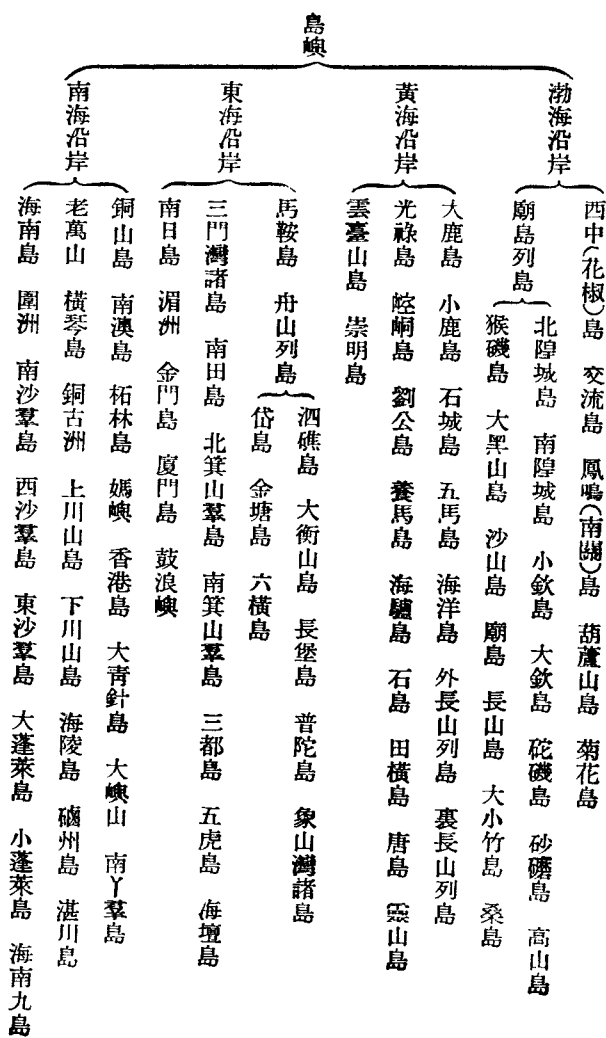 島嶼
渤海沿岸
西中(花椒)島 交流島 鳳鳴(南關)島 葫蘆山島 菊花島
廟島列島
北隍城島 南隍城島 小欽島 大欽島 砣磯島 砂磨島 高山島
猴磯島 大黑山島 沙山島 廟島 長山島 大小竹島 桑島
黃海沿岸
大鹿島 小鹿島 石城島 五馬島 海洋島 外長山列島 裏長山列島
光祿島 崆峒島 劉公島 養馬島 海驢島 石島 田橫島 唐島 靈山島
雲臺山島 崇明島
東海沿岸
馬鞍島 舟山列島
泗礁島 大衡山島 長堡島 普陀島 象山灣諸島
岱島 金塘島 六橫島
三門灣諸島 南田島 北箕山羣島 南箕山羣島 三都島 五虎島 海壇島
南日島 湄洲 金門島 廈門島 鼓浪嶼
南海沿岸
銅山島 南澳島 柘林島 媽嶼 香港島 大青針島 大嶼山 南丫羣島
老萬山 橫琴島 銅古洲 上川山島 下川山島 海陵島 硇州島 湛川島
海南島 圍洲 南沙羣島 西沙羣島 東沙羣島 大蓬萊島 小蓬萊島 海南九島